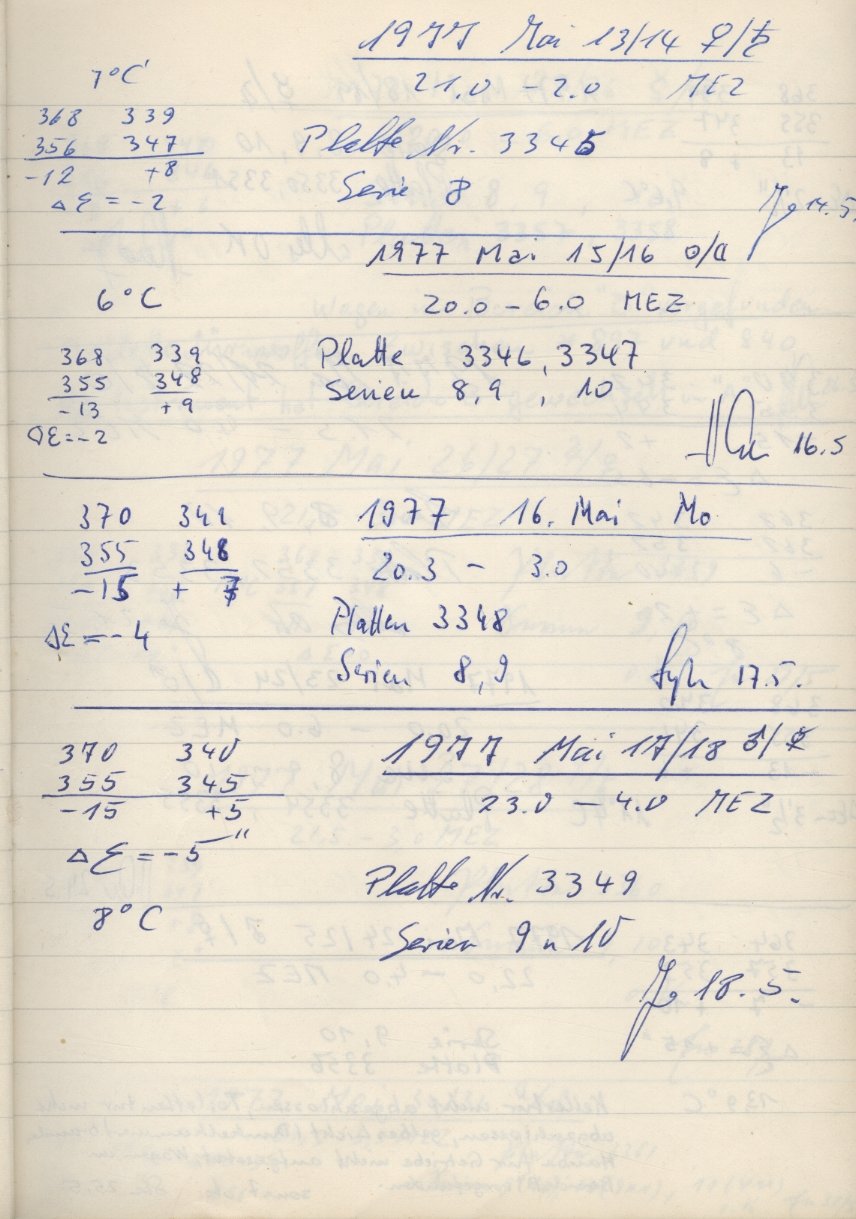 1977 Mai 13/14 ♀/♄
7°C
21.0 - 2.0 MEZ
368 339
356 347
-12 +8
Δε = -2
Platte Nr. 3345
Serie 8
14.5.
1977 Mai 15/16 ☉/☾
6°C
20.0 - 6.0 MEZ
368 339
355 348
-13 +9
Δε = -2
Platte 3346, 3347
Serien 8, 9, 10
16.5
1977 16. Mai Mo
370 341
355 348
-15 + 7
Δε = -4
20.3 - 3.0
Platten 3348
Serien 8, 9
17.5.
1977 Mai 17/18 ♂/☿
370 340
355 345
-15 +5
Δε = -5"
8°C
23.0 - 4.0 MEZ
Platte Nr. 3349
Serien 9 u 10
18.5.